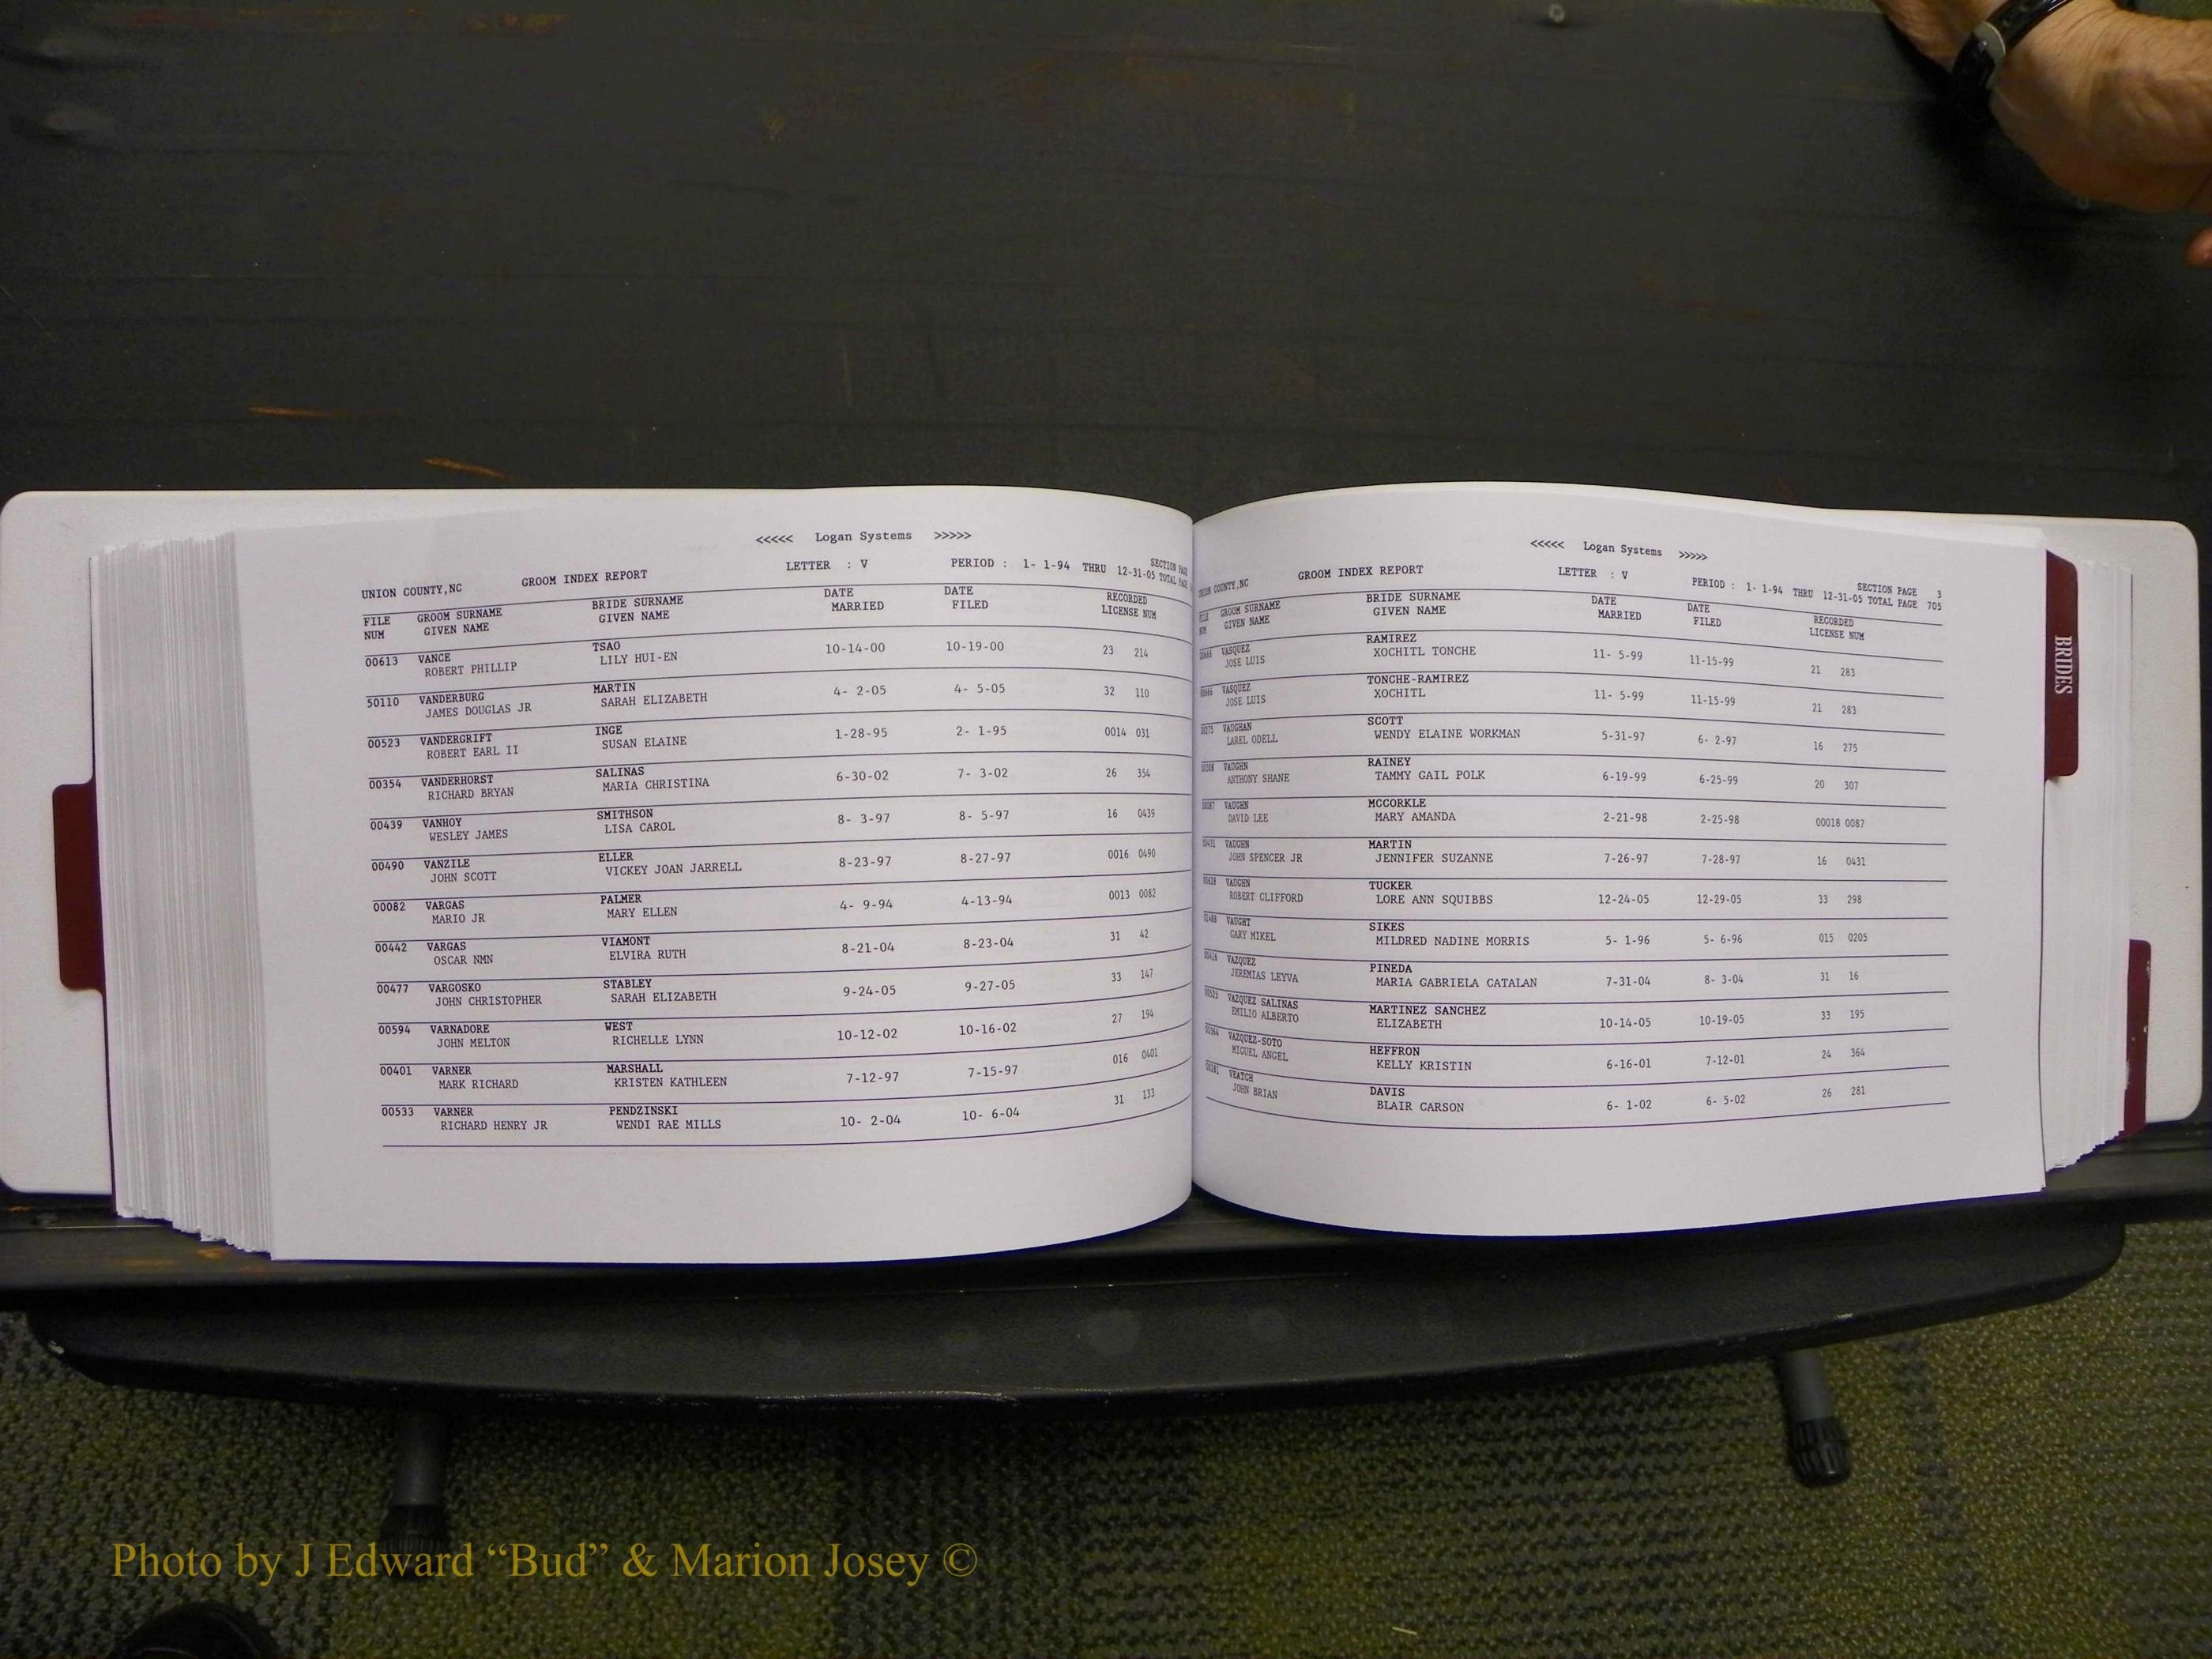 <<<<< Logan Systems >>>>>
UNION COUNTY,NC GROOM INDEX REPORT LETTER : V PERIOD : 1- 1-94 THRU 12-31-05 SECTION PAGE
TOTAL PAGE
FILE GROOM SURNAME BRIDE SURNAME DATE DATE RECORDED
NUM GIVEN NAME GIVEN NAME MARRIED FILED LICENSE NUM
00613 VANCE TSAO 10-14-00 10-19-00 23 214
ROBERT PHILLIP LILY HUI-EN
50110 VANDERBURG MARTIN 4- 2-05 4- 5-05 32 110
JAMES DOUGLAS JR SARAH ELIZABETH
00523 VANDERGRIFT INGE 1-28-95 2- 1-95 0014 031
ROBERT EARL II SUSAN ELAINE
00354 VANDERHORST SALINAS 6-30-02 7- 3-02 26 354
RICHARD BRYAN MARIA CHRISTINA
00439 VANHOY SMITHSON 8- 3-97 8- 5-97 16 0439
WESLEY JAMES LISA CAROL
00490 VANZILE ELLER 8-23-97 8-27-97 0016 0490
JOHN SCOTT VICKEY JOAN JARRELL
00082 VARGAS PALMER 4- 9-94 4-13-94 0013 0082
MARIO JR MARY ELLEN
00442 VARGAS VIAMONT 8-21-04 8-23-04 31 42
OSCAR NMN ELVIRA RUTH
00477 VARGOSKO STABLEY 9-24-05 9-27-05 33 147
JOHN CHRISTOPHER SARAH ELIZABETH
00594 VARNADORE WEST 10-12-02 10-16-02 27 194
JOHN MELTON RICHELLE LYNN
00401 VARNER MARSHALL 7-12-97 7-15-97 016 0401
MARK RICHARD KRISTEN KATHLEEN
00533 VARNER PENDZINSKI 10- 2-04 10- 6-04 31 133
RICHARD HENRY JR WENDI RAE MILLS
<<<<< Logan Systems >>>>>
UNION COUNTY,NC GROOM INDEX REPORT LETTER : V PERIOD : 1- 1-94 THRU 12-31-05 SECTION PAGE 3
TOTAL PAGE 705
FILE GROOM SURNAME BRIDE SURNAME DATE DATE RECORDED
NUM GIVEN NAME GIVEN NAME MARRIED FILED LICENSE NUM
VASQUEZ RAMIREZ 11- 5-99 11-15-99 21 283
JOSE LUIS XOCHITL TONCHE
VASQUEZ TONCHE-RAMIREZ 11- 5-99 11-15-99 21 283
JOSE LUIS XOCHITL
VAUGHAN SCOTT 5-31-97 6- 2-97 16 275
LAREL ODELL WENDY ELAINE WORKMAN
VAUGHN RAINEY 6-19-99 6-25-99 20 307
ANTHONY SHANE TAMMY GAIL POLK
00087 VAUGHN MCCORKLE 2-21-98 2-25-98 00018 0087
DAVID LEE MARY AMANDA
00431 VAUGHN MARTIN 7-26-97 7-28-97 16 0431
JOHN SPENCER JR JENNIFER SUZANNE
VAUGHN TUCKER 12-24-05 12-29-05 33 298
ROBERT CLIFFORD LORE ANN SQUIBBS
VAUGHT SIKES 5- 1-96 5- 6-96 015 0205
GARY MIKEL MILDRED NADINE MORRIS
VAZQUEZ PINEDA 7-31-04 8- 3-04 31 16
JEREMIAS LEYVA MARIA GABRIELA CATALAN
VAZQUEZ SALINAS MARTINEZ SANCHEZ 10-14-05 10-19-05 33 195
EMILIO ALBERTO ELIZABETH
00364 VAZQUEZ-SOTO HEFFRON 6-16-01 7-12-01 24 364
MIGUEL ANGEL KELLY KRISTIN
00281 VEATCH DAVIS 6- 1-02 6- 5-02 26 281
JOHN BRIAN BLAIR CARSON
BRIDES
Photo by J Edward “Bud” & Marion Josey ©